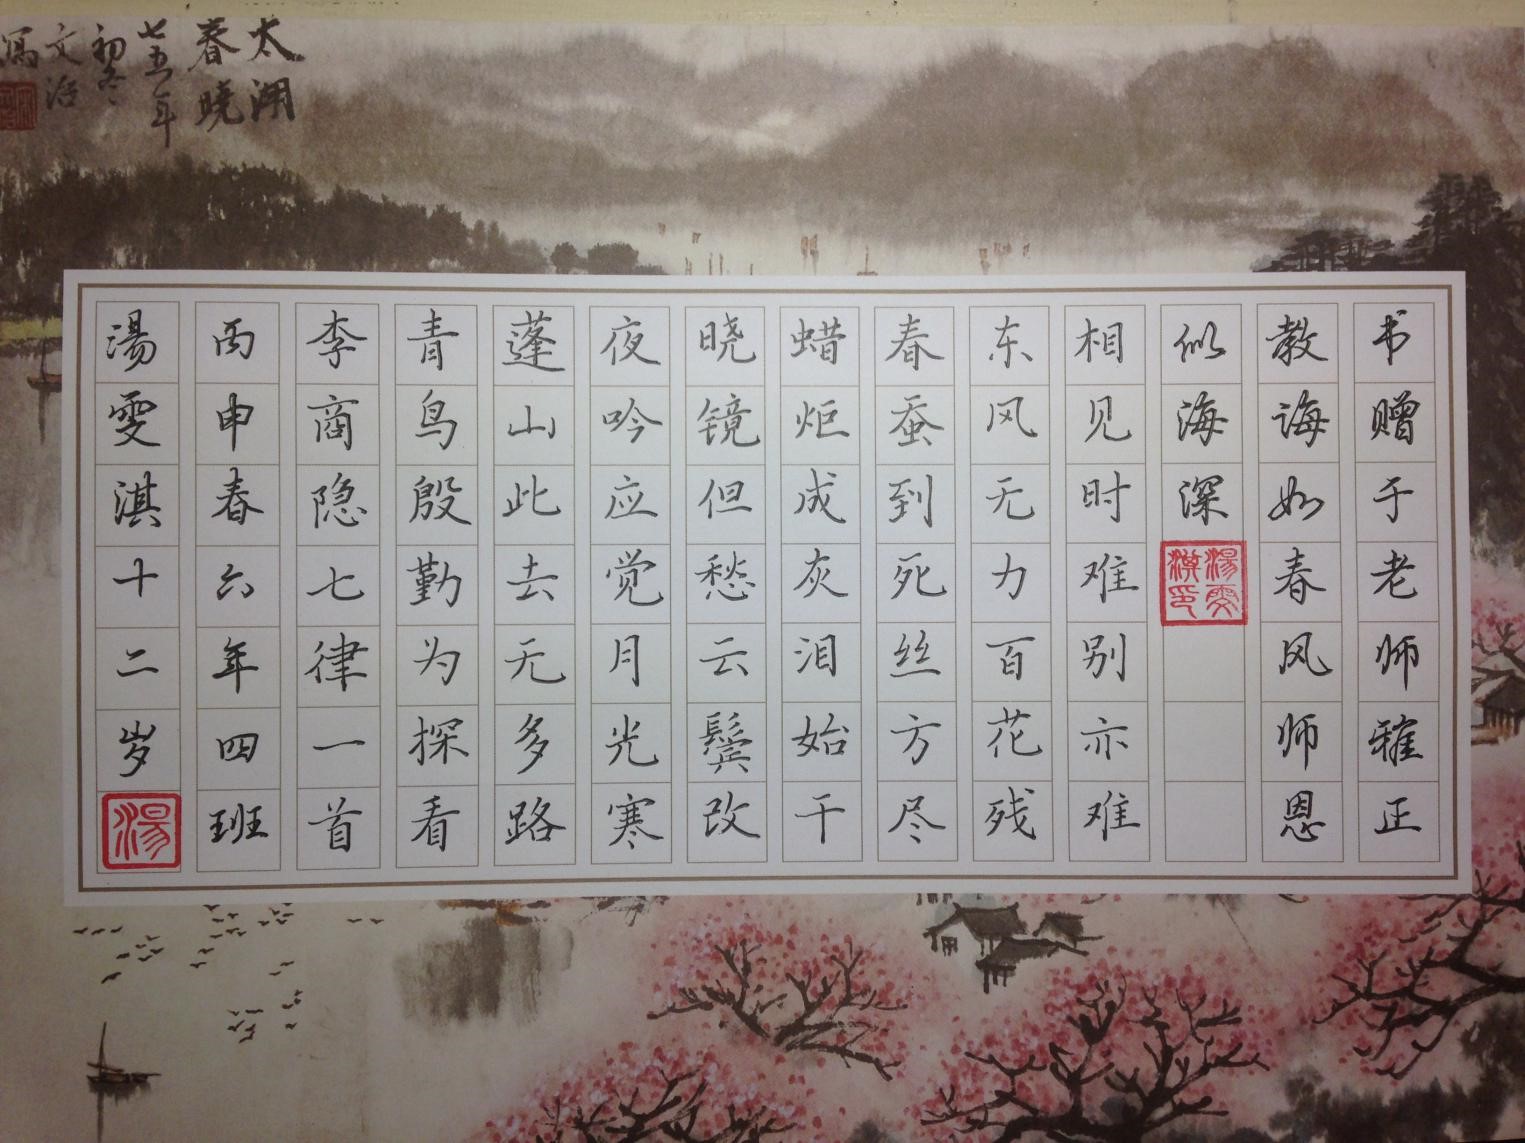 书赠于老师雅正
教诲如春风师恩
似海深
湯雯淇印
相见时难别亦难
东风无力百花残
春蚕到死丝方尽
蜡炬成灰泪始干
晓镜但愁云鬓改
夜吟应觉月光寒
蓬山此去无多路
青鸟殷勤为探看
李商隐七律一首
丙申春六年四班
湯雯淇十二岁
湯
太湖
春晓
七五年
初冬
文治
写